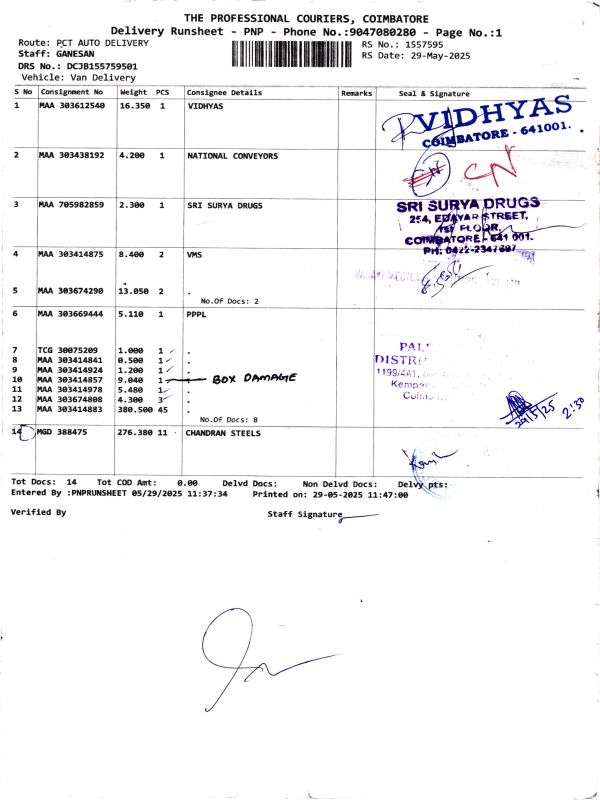 THE PROFESSIONAL COURIERS, COIMBATORE
Delivery Runsheet - PNP - Phone No.:9047080280 - Page No.:1
Route: PCT AUTO DELIVERY
RS No.: 1557595
Staff: GANESAN
RS Date: 29-May-2025
DRS No.: DCJB155759501
Vehicle: Van Delivery
S No Consignment No Weight PCS Consignee Details Remarks Seal & Signature
1 MAA 303612540 16.350 1 VIDHYAS
VIDHYAS
COIMBATORE - 641001.
2 MAA 303438192 4.200 1 NATIONAL CONVEYORS
CN CN
3 MAA 705982859 2.300 1 SRI SURYA DRUGS
SRI SURYA DRUGS
254, EDAYAR STREET,
1ST FLOOR,
COIMBATORE - 641 001.
PH: 0422-2347697
4 MAA 303414875 8.400 2 VMS
5 MAA 303674290 13.050 2 .
No.Of Docs: 2
6 MAA 303669444 5.110 1 PPPL
7 TCG 30075209 1.000 1 .
8 MAA 303414841 0.500 1 .
9 MAA 303414924 1.200 1 .
10 MAA 303414857 9.040 1 . BOX DAMAGE
11 MAA 303414978 5.480 1 .
12 MAA 303674808 4.300 3 .
13 MAA 303414883 380.500 45 .
No.Of Docs: 8
DISTR
1199/4A1,
29/5/25 2:30
14 MGD 388475 276.380 11 CHANDRAN STEELS
Tot Docs: 14 Tot COD Amt: 0.00 Delvd Docs: Non Delvd Docs: Delvy pts:
Entered By :PNPRUNSHEET 05/29/2025 11:37:34 Printed on: 29-05-2025 11:47:00
Verified By Staff Signature